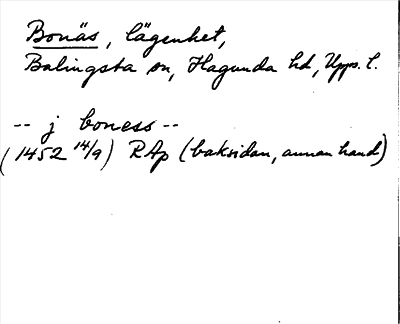 Bonäs, lägenhet,
Balingsta sn, Hagunda hd, Upps. l.
-- j boness --
(1452 14/9) RAp (baksidan, annan hand)